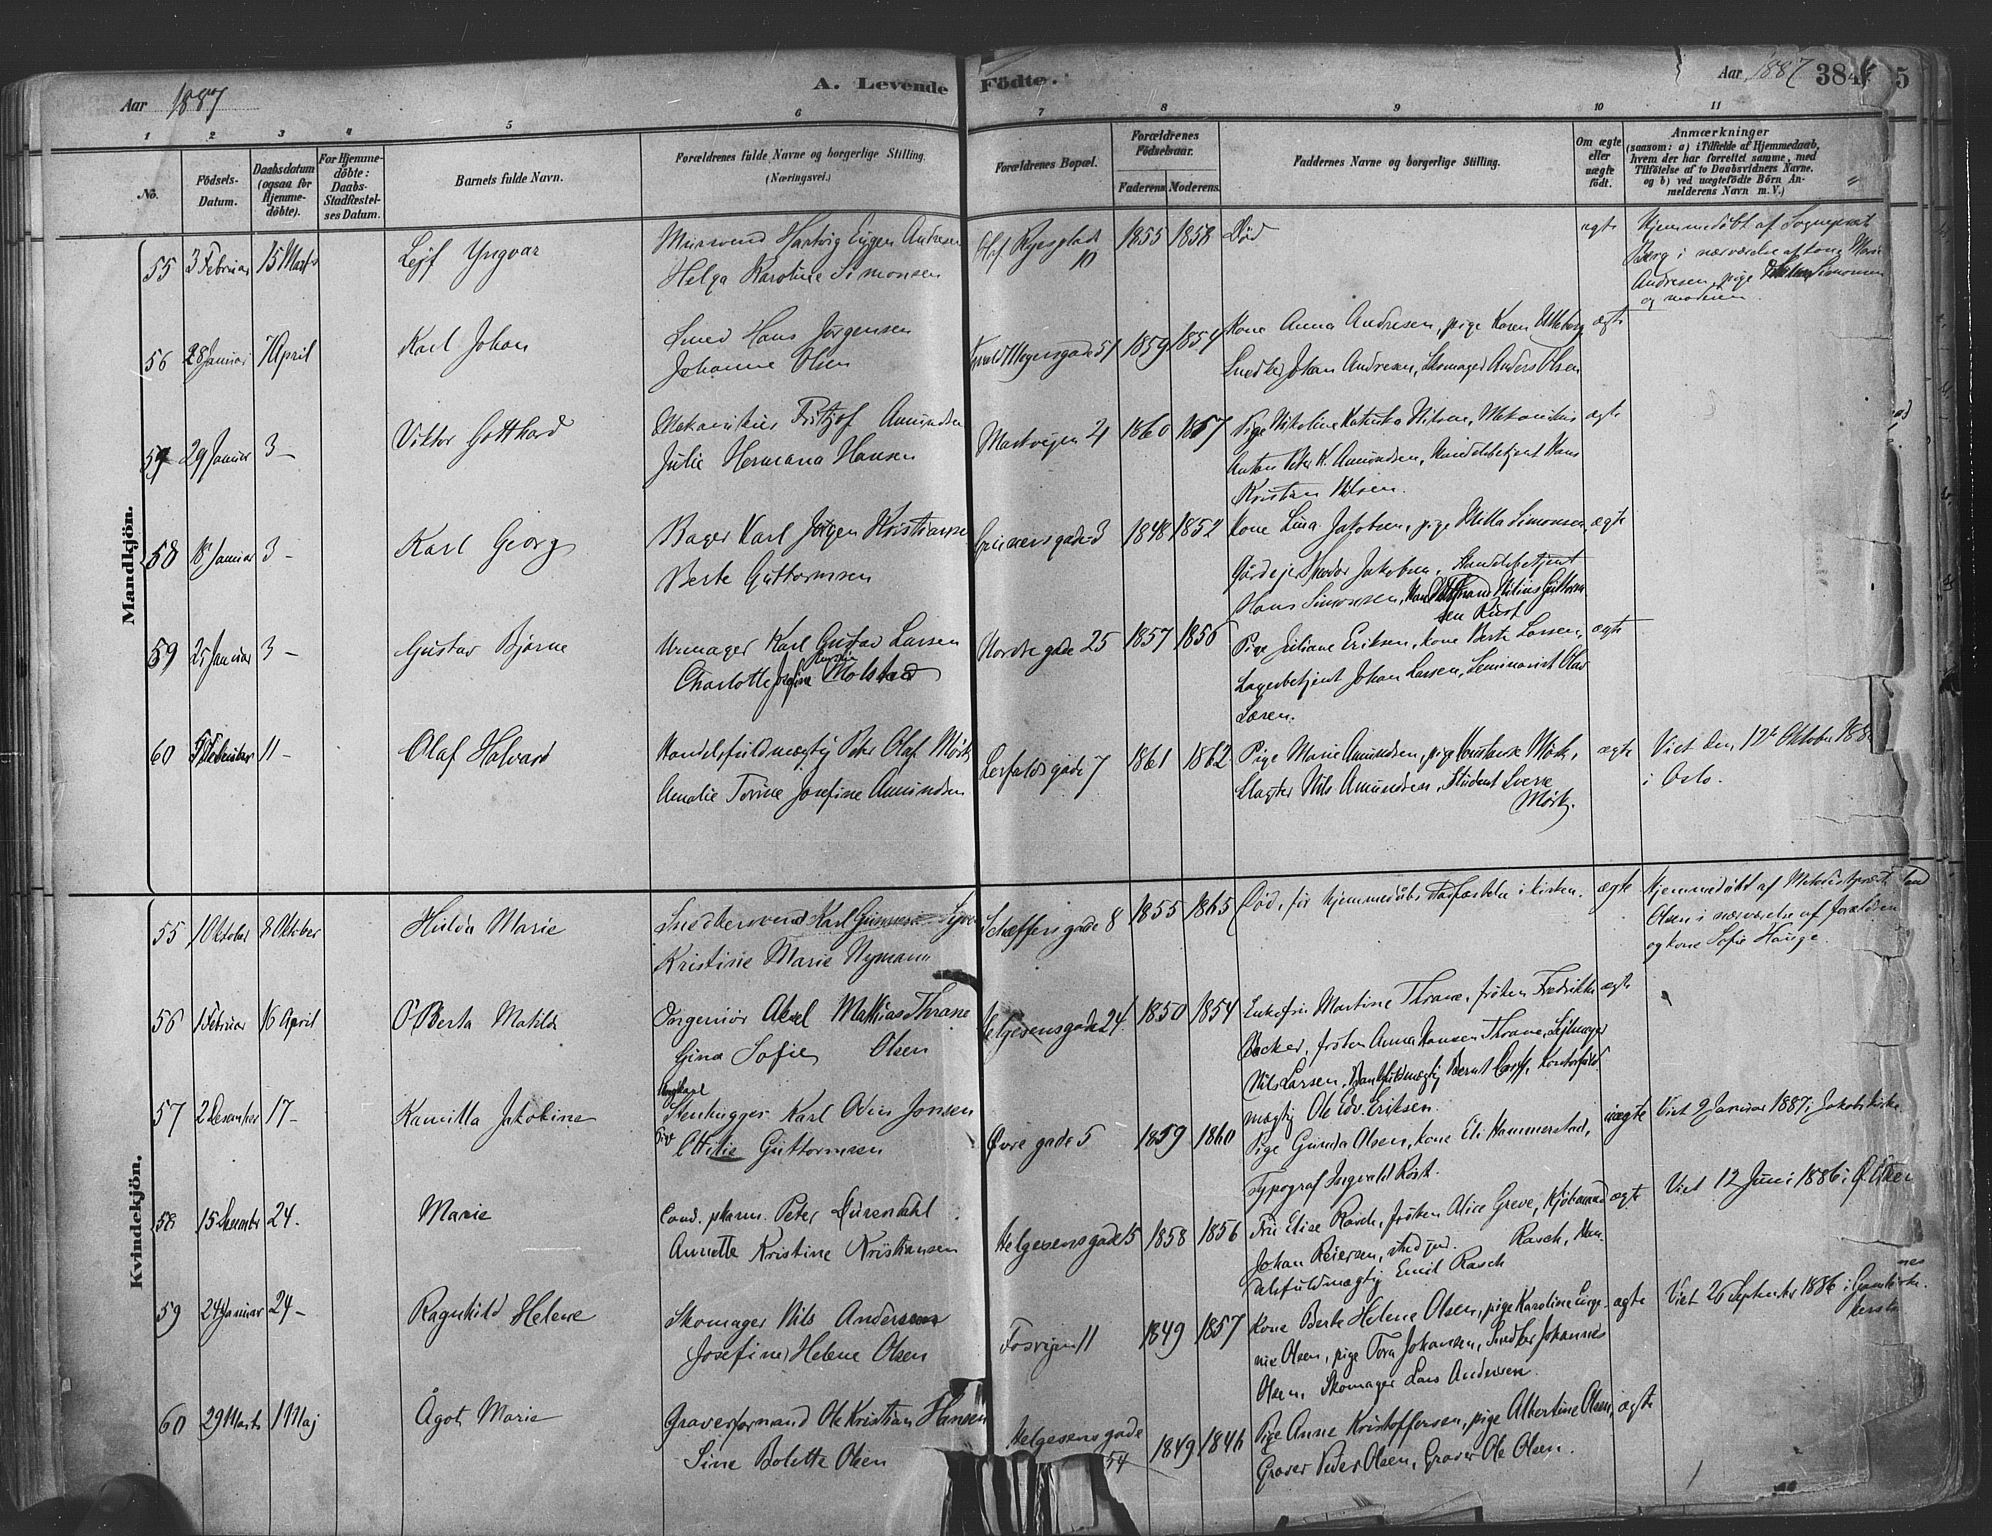 Aar 1887
A. Levende Födte.
Aar 1887 384
5
1 2 3 4 5 6 7 8 9 10 11
No.
Födsels-Datum.
Daabsdatum (ogsaa for Hjemme-döbte).
For Hjemme-döbte: Daabs-Stadfæstel-ses Datum.
Barnets fulde Navn.
Forældrenes fulde Navne og borgerlige Stilling. (Næringsvei.)
Forældrenes Bopæl.
Forældrenes Födselsaar.
Faderens. Moderens.
Faddernes Navne og borgerlige Stilling.
Om ægte eller uægte födt.
Anmærkninger
(saasom: a) i Tilfælde af Hjemmedaab, hvem der har forrettet samme, med Tilföielse af to Daabsvidners Navne. og b) ved uægtefödte Börn An-melderens Navn m. V.)
Mandkjön.
55 3 Februar 15 Marts Lejf Yngvar
Hartvig Eugen Andresen
Helga Karoline Simonsen
Olaf Ryesplads 10 1855 1858 Død ægte
Hjemmedøbt af Sogneprest
Berg i nærværelse af kone Marie
Andresen, pige Simonsen
og moderen.
56 28 Januar April Karl Johan
Smed Hans Jørgensen
Johanne Olsen
Meyersgade 51 1859 1854
Kone Anna Andresen, pige Karen ægte
Snedker Johan Andresen, Skomager Anders Olsen
57 29 Januar 3 – Viktor Gotthard
Mekanikus Fritjof Amundsen
Julie Hermana Hansen
Markvejen 21 1860 1857
Pige Nikoline Nilsen, Mekanikus ægte
Anton Peter H. Amundsen, Handelsbetjent Hans
Kristian Nilsen.
58 18 Januar 3 – Karl Georg
Bager Karl Jørgen Kristiansen
Berte Guttormsen
Grünersgade 3 1848 1852
Kone Lina Jakobsen, pige Milla Simonsen, ægte
Gårdejer Jakobsen, Handelsbetjent
Hans Simonsen, Nilius Guttorm
sen Rust
59 25 Januar 3 – Gustav Bjarne
Urmager Karl Gustav Larsen
Charlotte Josefine Molstad
Nordregade 25 1857 1856
Pige Juliane Eriksen, kone Berte Larsen, ægte
Lagerbetjent Johan Larsen, Seminarist Olav
Larsen.
60 11 – Olaf Halvard
Handelsfuldmægtig Peter Olaf Mørk
Amalie Torine Josefine Amundsen
Herfaldsgade 7 1861 1862
Pige Marie Amundsen, pige Mørk, ægte
Slagter Nils Amundsen, Student Sverre
Mørk.
Viet den 12te Oktober
i Oslo.
Kvindekjön.
55 1 Oktober 8 Oktober Hilda Marie
Snedkersvend Karl Gunnar
Kristine Marie Nymann
Schæffersgade 8 1855 1865
Død, før hjemmedåbs Stadfæstelse i kirken. ægte
Hjemmedøbt af Metodistprest
Olsen i nærværelse af forældrene
og kone Sofie Hauge.
56 1 Februar 16 April Berta Matilde
Ingeniør Aksel Mathias Thrane
Gina Sofie Olsen
Helgesensgade 24 1850 1854
Enkefru Martine Thrane, frøken Fredrikke ægte
Backer, frøken Anna Hansen Thrane, Sejlmager
Nils Larsen, Bankfuldmægtig Bernt , Kontorfuld
mægtig Ole Edv. Eriksen.
57 2 Desember 17 – Kamilla Jakobine
Ungkarl
Stenhugger Karl Odin Jonsen
Ottilie Guttormsen
Øvregade 5 1859 1860
Pige Gunda Olsen, kone Eli Hammerstad, uægte
Typograf Ingvald Røst.
Viet 9 Januar 1887 i Jakobskirke
58 15 Desember 24. Marie
Cand. pharm. Peter Durendahl
Annette Kristine Kristiansen
Helgesensgade 15 1858 1856
Fru Elise Rasch, frøken Alice Greve, Kjøbmand ægte
Johan Reiersen, stud. jur. Rasch, Han
delsfuldmægtig Emil Rasch
Viet 12 Juni 1886 i
59 24 Januar 24 – Ragnhild Helene
Skomager Nils Andersen
Josefine Helene Olsen
Fosvejen 11 1849 1857
Kone Berte Helene Olsen, pige Karoline Euge ægte
nie Olsen, pige Tora Johansen, Snedker Johannes
Olsen, Skomager Lars Andersen.
Viet 26 September 1886 i
60 29 Marts 1 Maj Ågot Marie
Graverformand Ole Kristian Hansen
Sine Bolette Olsen
Helgesensgade 54 1849 1846
Pige Anne Kristoffersen, pige Albertine Olsen, ægte
Graver Peder Olsen, Graver Ole Olsen.